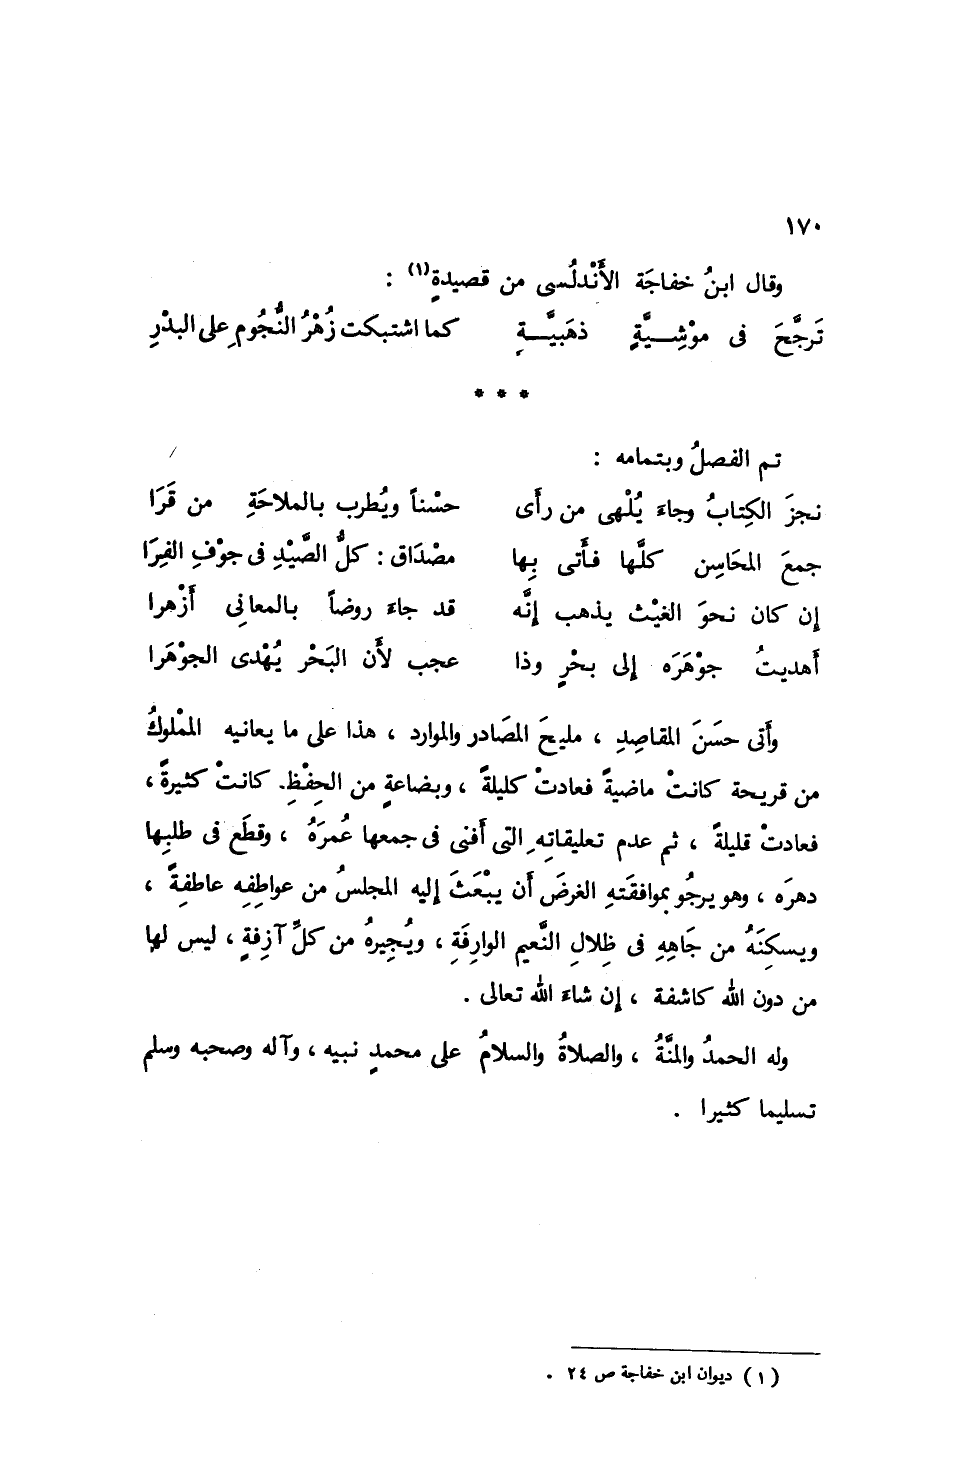 ١٧٠
وقال ابنُ خفاجَة الأَنْدلُسى من قصيدةٍ(١) :
تَرجَّحَ فى موْشِـــيَّةٍ ذهَبيَّـــةٍ كما اشتبكت زُهْرُ النُّجُومِ على البدْرِ
* * *
تم الفصلُ وبتمامه :
نجزَ الكِتابُ وجاءَ يُلْهى من رأَى حسْناً ويُطرب بالملاحَةِ من قَرَا
جمعَ المحَاسِن كلَّها فأَتى بِها مصْدَاق : كلُّ الصَّيْدِ فى جوْفِ الفِرَا
إن كان نحوَ الغيْث يذهب إنَّه قد جاءَ روضاً بالمعانى أَزْهرا
أَهديتُ جوْهَرَه إلى بحْرٍ وذا عجب لأَن البَحْر يُهْدى الجوْهَرا
وأَتى حسَنَ المقاصِدِ ، مليحَ المصَادر والموارد ، هذا على ما يعانيه المْلوكُ
من قريحة كانتْ ماضيةً فعادتْ كليلةً ، وبضاعةٍ من الحِفْظِ. كانتْ كثيرةً ،
فعادتْ قليلةً ، ثم عدم تعليقاتِه التى أَفنى فى جمعها عُمرَهُ ، وقطَع فى طلبِها
دهرَه ، وهو يرجُو بموافقتهِ الغرضَ أَن يبْعَثَ إليه المجلسُ من عواطفِه عاطفةً ،
ويسكِنَهُ من جَاهِهِ فى ظِلالِ النَّعيم الوارِفَةِ ، ويُجيرهُ من كلِّ آزِفةٍ ، ليس لها
من دون الله كاشفة ، إن شاءَ الله تعالى .
وله الحمدُ والمنَّةُ ، والصلاةُ والسلامُ على محمدٍ نبيه ، وآله وصحبه وسلم
تسليما كثيرا .
(١) ديوان ابن خفاجة ص ٢٤ .